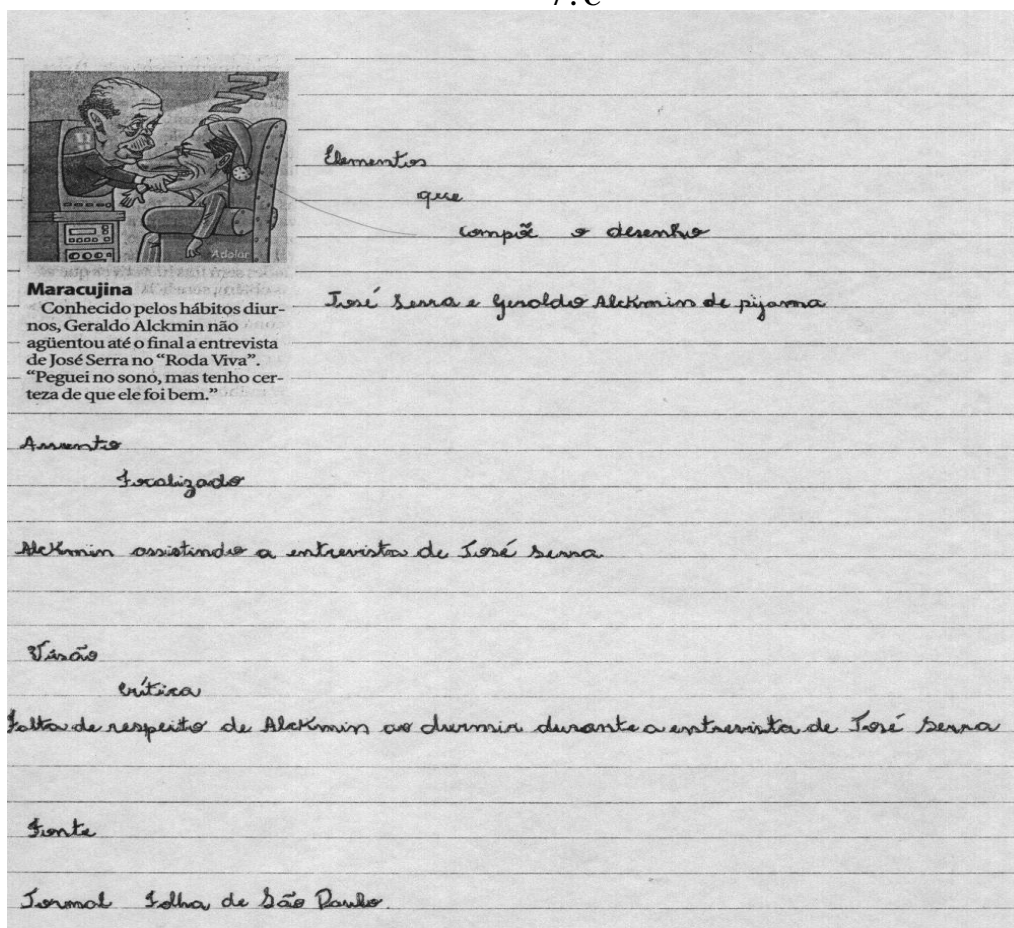 7.C
ZZZ
Adolar
Elementos
que
compõe o desenho
Maracujina
Conhecido pelos hábitos diur-
nos, Geraldo Alckmin não
agüentou até o final a entrevista
de José Serra no “Roda Viva”.
“Peguei no sono, mas tenho cer-
teza de que ele foi bem.”
José Serra e Geraldo Alckmin de pijama
Assunto
Focalizado
Alckmin assistindo a entrevista de José Serra
Visão
crítica
Falta de respeito de Alckmin ao durmir durante a entrevista de José Serra
Fonte
Jornal Folha de São Paulo.